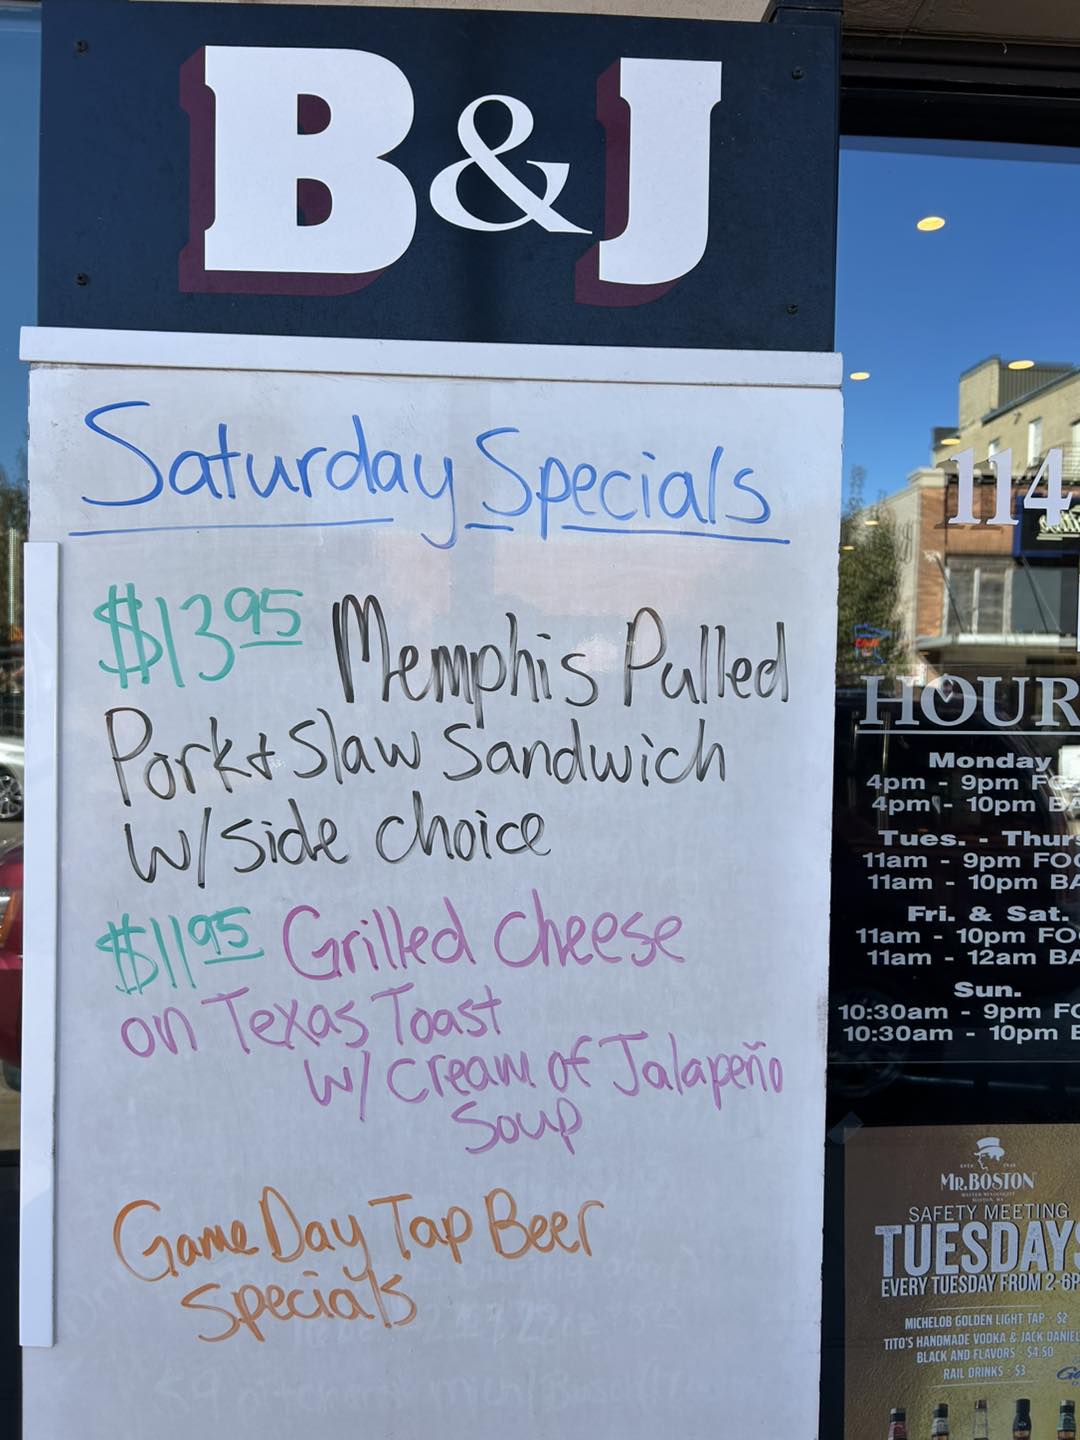 B&J
Saturday Specials
$13.95 Memphis Pulled
Pork + Slaw Sandwich
w/side choice
$11.95 Grilled Cheese
on Texas Toast
w/ Cream of Jalapeño
Soup
Game Day Tap Beer
Specials
114
HOUR
Monday
4pm - 9pm
4pm - 10pm
Tues. - Thurs
11am - 9pm
11am - 10pm
Fri. & Sat.
11am - 10pm
11am - 12am
Sun.
10:30am - 9pm
10:30am - 10pm
MR. BOSTON
SAFETY MEETING
TUESDAYS
EVERY TUESDAY FROM 2-6P
MICHELOB GOLDEN LIGHT TAP - $2
TITO'S HANDMADE VODKA & JACK DANIEL
BLACK AND FLAVORS - $4.50
RAIL DRINKS - $3